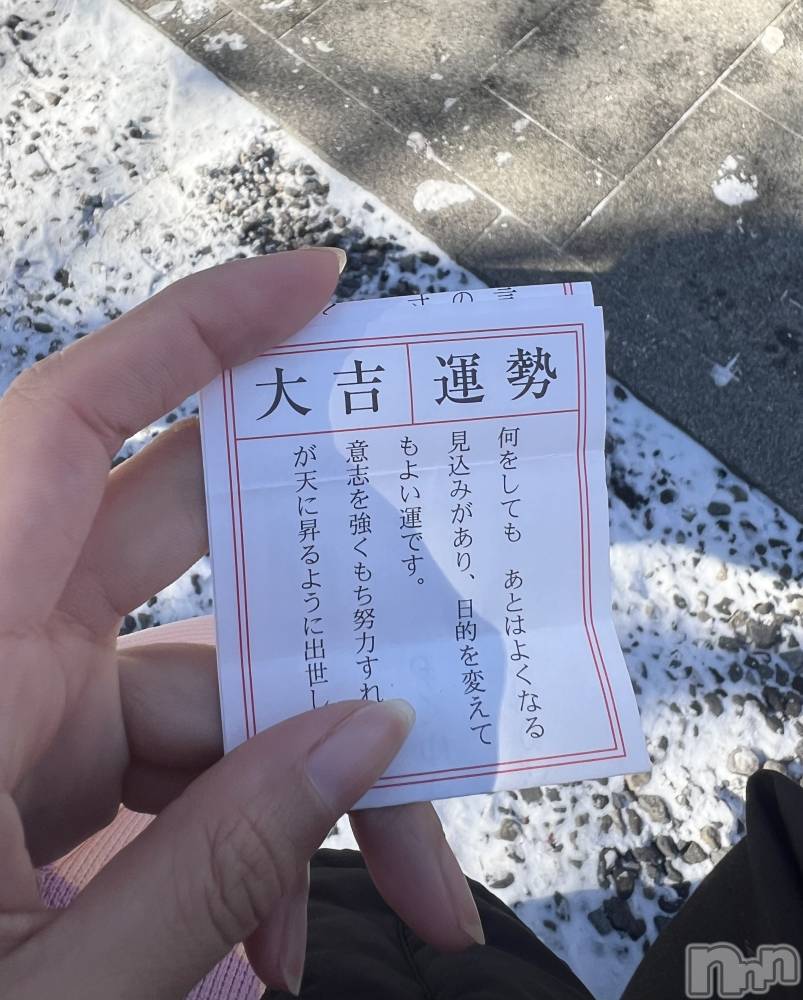 運勢
大吉
何をしても　あとはよくなる
見込みがあり、目的を変えて
もよい運です。
意志を強くもち努力すれ
が天に昇るように出世し
nnn